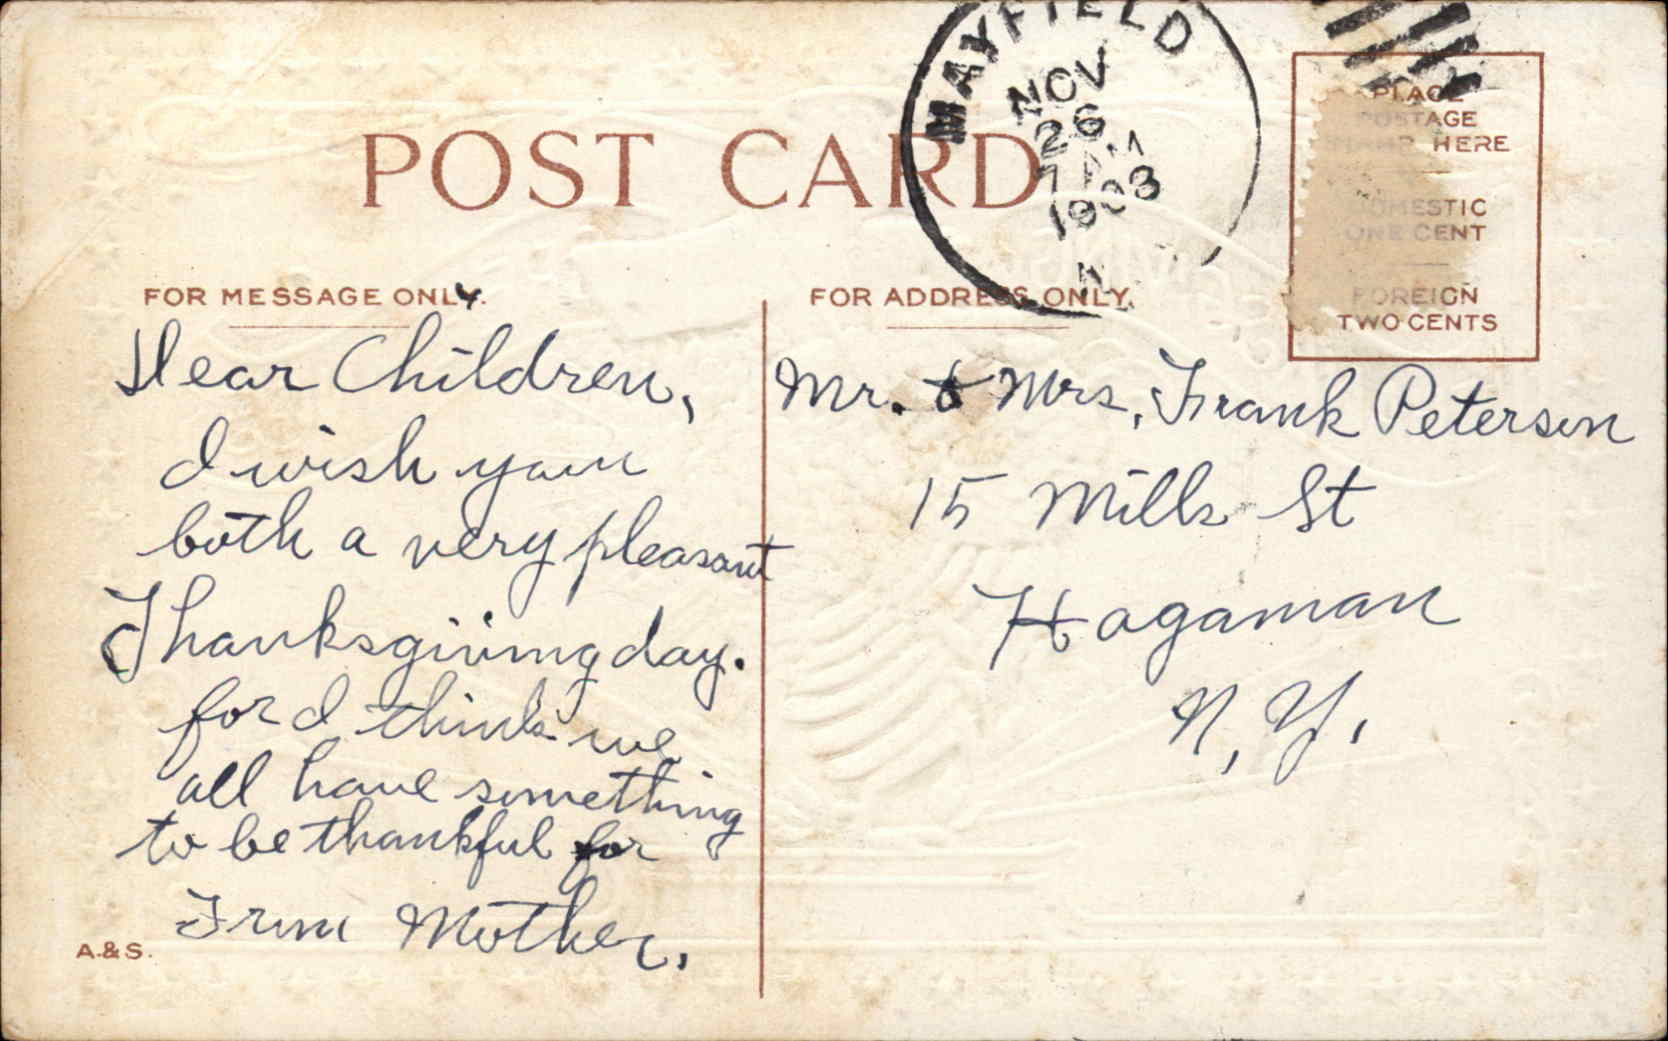 MAYFIELD
NOV
26
7 AM
1908
N
POST CARD
PLACE
POSTAGE
STAMP HERE
DOMESTIC
ONE CENT
FOREIGN
TWO CENTS
FOR MESSAGE ONLY.
Dear Children,
I wish you
both a very pleasant
Thanksgiving day.
for I think we
all have something
to be thankful for
From Mother.
A.& S.
FOR ADDRESS ONLY.
Mr. & Mrs. Frank Peterson
15 Mills St
Hagaman
N.Y.